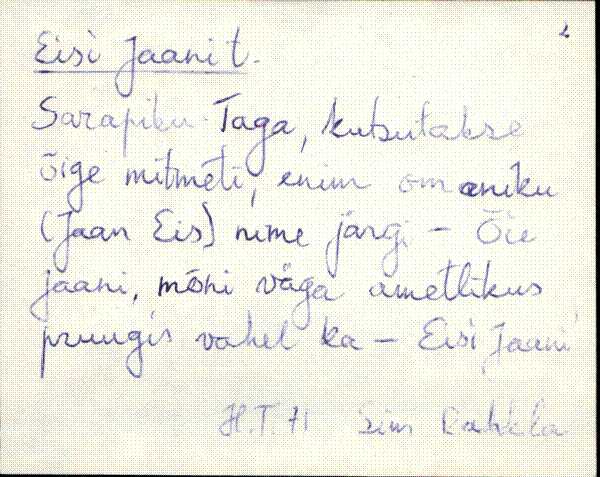 Eisi Jaani t.
Sarapiku-Taga, kutsutakse
õige mitmeti, enim omaniku
(Jaan Eis) nime järgi - Õie
jaani, mõni väga ametlikus
pruugis vahel ka - Eisi Jaani
H.T. 71 Sim Rahkla